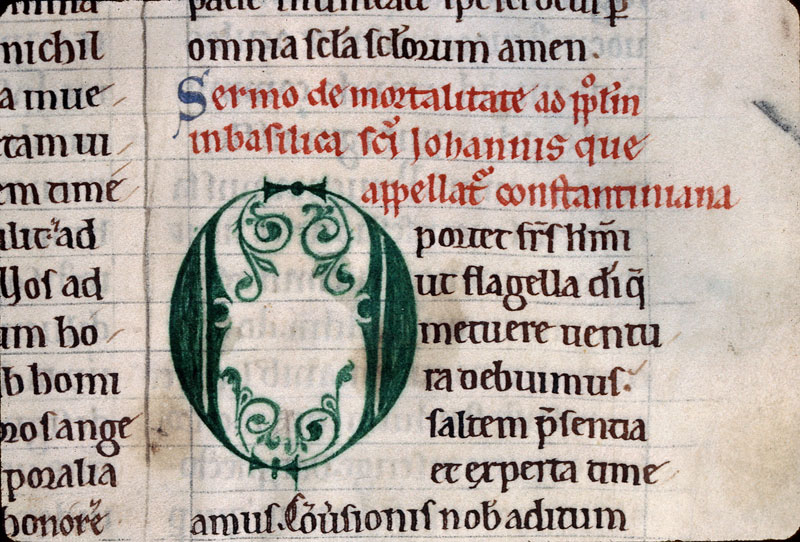 nichil
a mue
tam ui
em time
alit᷑ ad
llos ad
um ho
b homi
ros ange
poralia
honorē
omnia scl̄a scl̄orum amen.
Sermo de mortalitate ad pp̄lm̄
in basilica sc̄i Johannis que
appellat᷑ constantiniana
Oportet fr̄s km̄i
ut flagella di q̄
metuere uentu
ra debuimus.
saltem p̄sentia
et experta time
amus. Cōūsionis nob̄ aditum